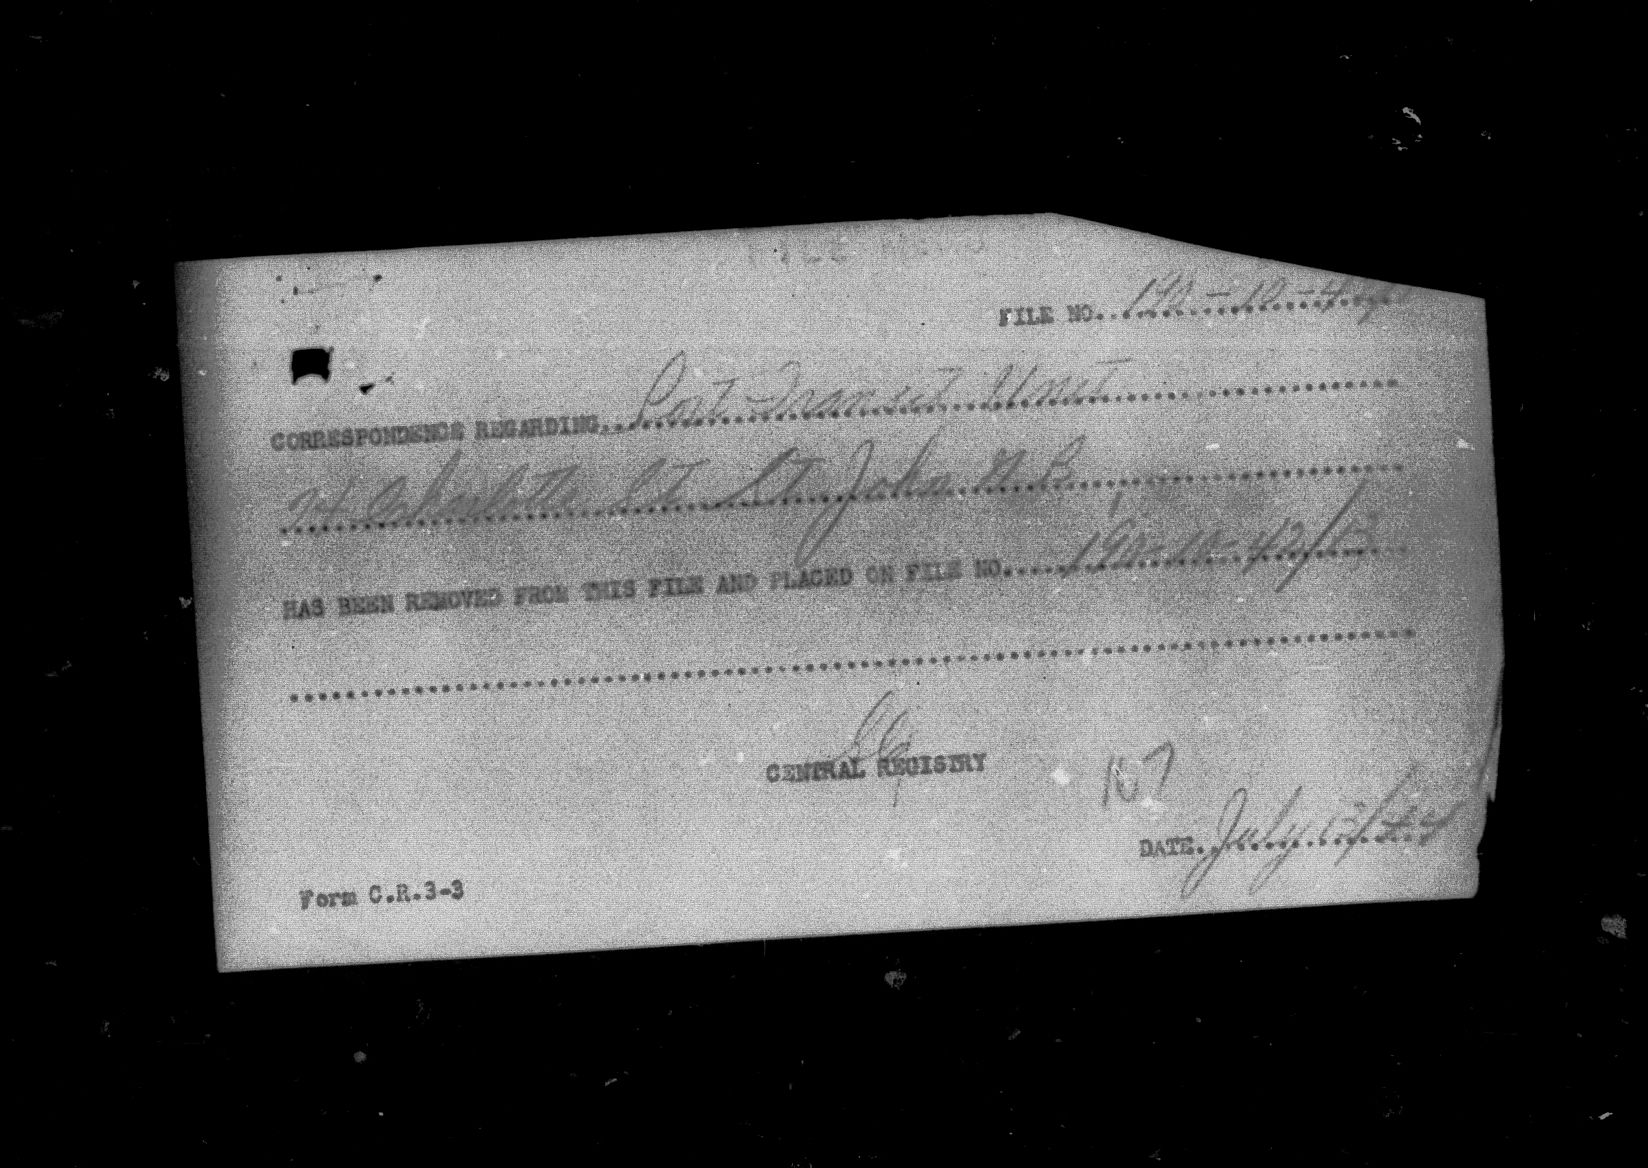 FILE NO. 190-10-42
CORRESPONDENCE REGARDING Port Transit Unit
24 Charlotte St. St. John N.B.
HAS BEEN REMOVED FROM THIS FILE AND PLACED ON FILE NO. 190-10-42/13
CENTRAL REGISTRY
167
DATE. July 13/44
Form C.R.3-3